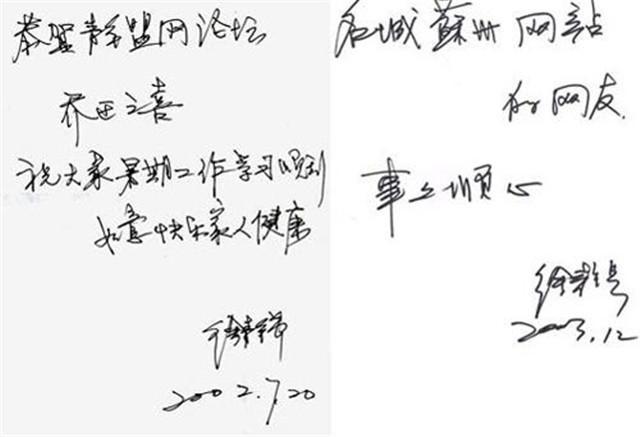 恭贺联盟网论坛
乔迁之喜
祝大家暑期工作学习顺利
如意快乐家人健康
2002.7.20
名城蘇州网站
的网友
事之顺心
2003.12